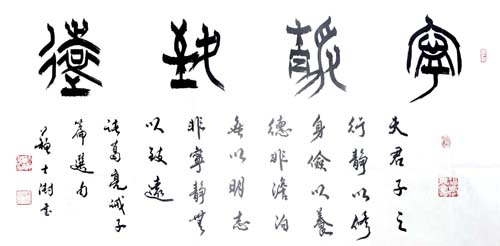 寧靜致遠
夫君子之
行靜以修
身儉以養
德非澹泊
無以明志
非寧靜無
以致遠
諸葛亮誡子
篇選句
蘇士澍書